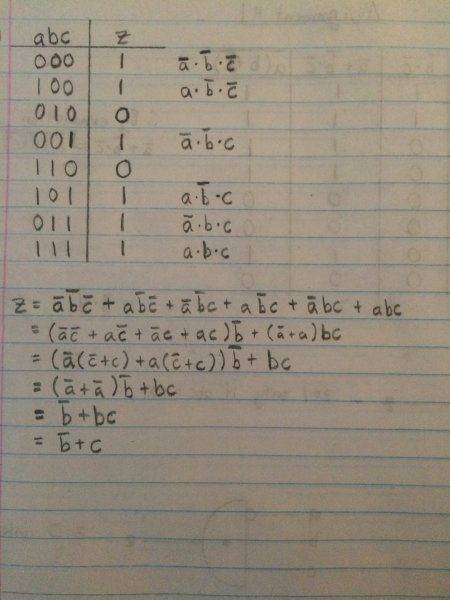 abc z
000 1 a̅·b̅·c̅
100 1 a·b̅·c̅
010 0
001 1 a̅·b̅·c
110 0
101 1 a·b̅·c
011 1 a̅·b·c
111 1 a·b·c
z = a̅b̅c̅ + ab̅c̅ + a̅b̅c + ab̅c + a̅bc + abc
= (a̅c̅ + ac̅ + a̅c + ac)b̅ + (a̅+a)bc
= (a̅(c̅+c) + a(c̅+c))b̅ + bc
= (a̅+a̅)b̅ + bc
= b̅ + bc
= b̅ + c